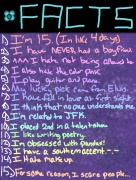 FACTS
1) I'm 15. (In like 4 days)
2) I have NEVER had a boyfriend
3) ^^^ I hate not being allowed to
4) I also hate the color pink
5) I play guitar and piano
6) My lucky pick is from Elvis
7) I have fell in love at first sight
8) I think that no one understands me
9) I'm related to JFK.
10) I placed 2nd in a
11) I like writing poetry
12) I'm obsessed with pandas!
13) I have a southern accent.
14) I hate make-up
15) For some reason, I scare people...